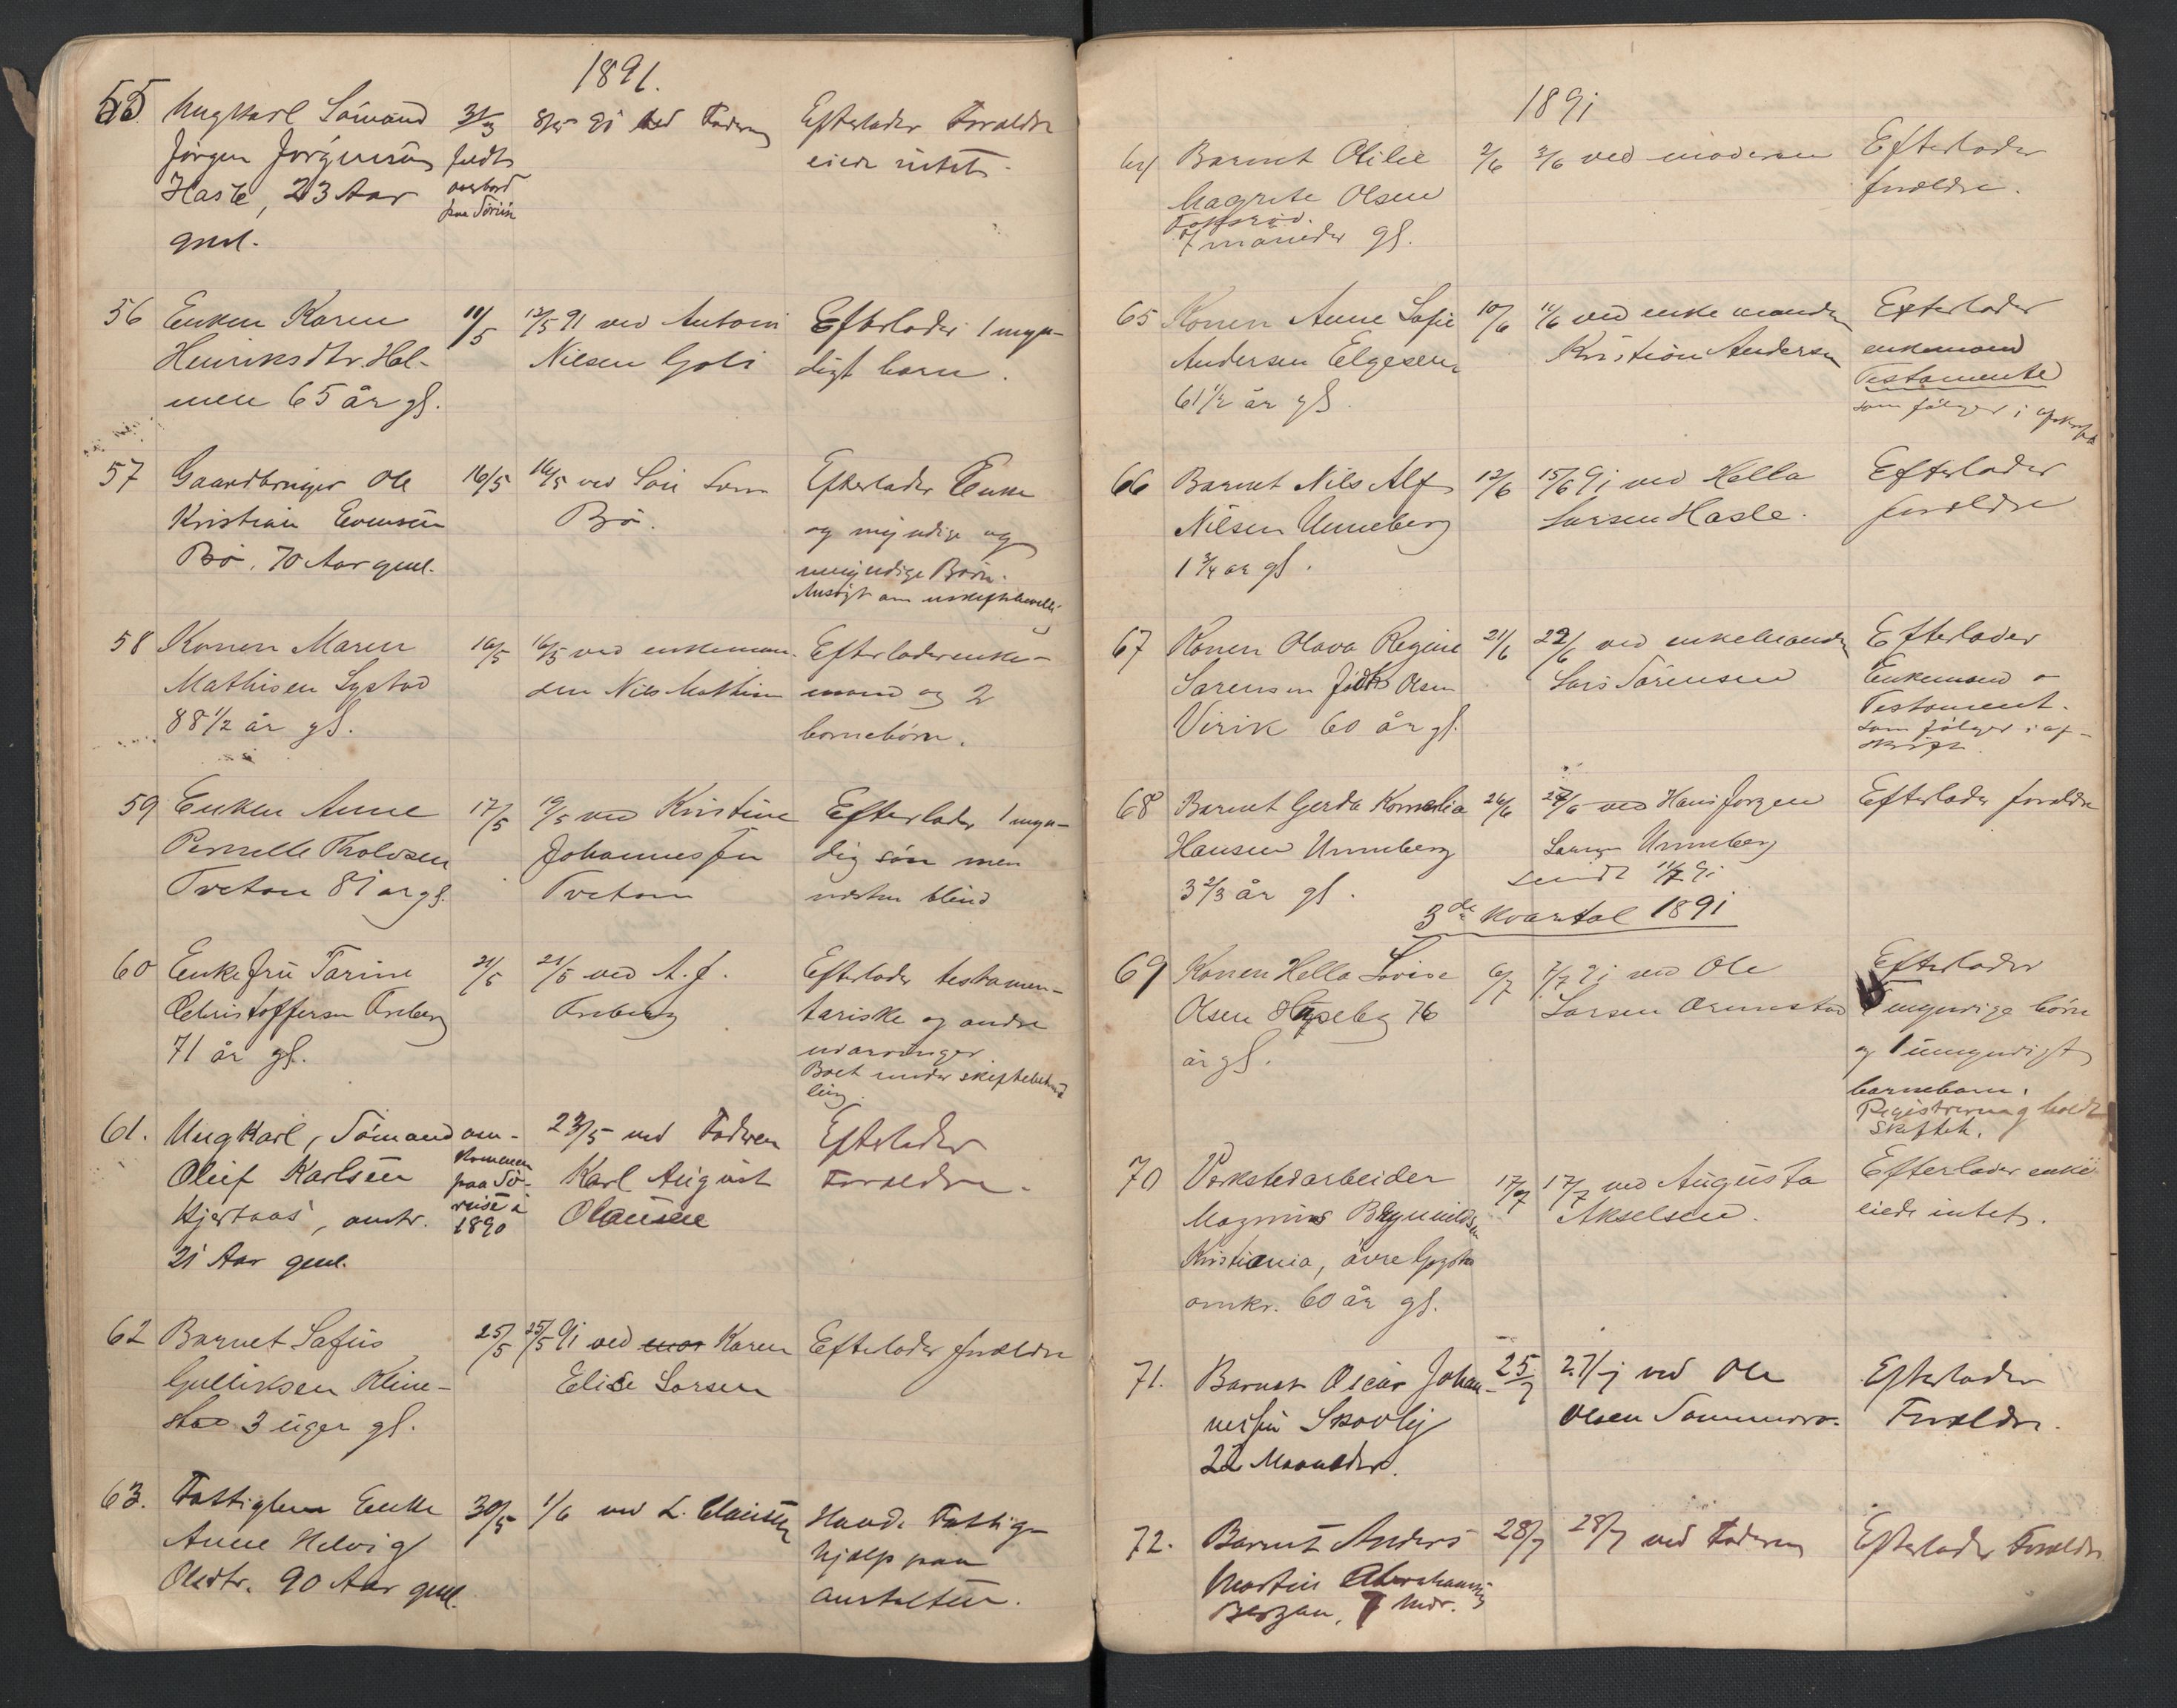 1891.
55 Ungkarl Sömand 31/3 8/5 91 ved Faderen Efterlader Forældre
Jörgen Jörgensen faldt eiede intet.
Hasle, 23 Aar overbord
gml. fra Söriis
56 Enken Karen 11/5 12/5 91 ved Anton Efterlader 1 myn-
Henriksdtr. Hol- Nilsen Goli digt barn.
men 65 år gl.
57 Gaardbruger Ole 16/5 16/5 ved Efterlader Enke
Kristian Evensen Bö. og myndige og
Bö, 70 Aar gml. umyndige Börn.
Ansögt om uskiftebevilli
58 Konen Maren 16/5 16/5 ved enkeman- Efterlader enke-
Mathisen Lystad den Nils Mathisen mand og 2
88 1/2 år gl. barnebörn.
59 Enken Anne 17/5 19/5 ved Kristine Efterlader 1 myn-
Pernelle Tholvsen Johannessen dig sön men
Tvetan 81 år gl. Tvetan næsten blind
60 Enkefru Tarine 21/5 21/5 ved A. J. Efterlader testamen-
Christoffersen Freberg Freberg tariske og andre
71 år gl. udarvinger
Boet under skiftebehand
ling.
61. Ungkarl, Sömand om- 23/5 ved Faderen Efterlader
Oluf Karlsen kommen Karl August Forældre.
Kjertaas, omtr. paa Sö- Olausen
21 Aar gml. reise i
1890
62 Barnet Sofus 25/5 25/5 91 ved mor Karen Efterlader forældre
Gulliksen Kline- Elise Larsen
stad 3 uger gl.
63. Fattiglem Enke 30/5 1/6 ved L. Clausen Havde Fattig-
Anne Helvig hjælp paa
Olsdtr. 90 Aar gml. anstalten.
1891
64 Barnet Olilie 2/6 3/6 ved moderen Efterlader
Magrete Olsen forældre.
Fokserød.
7 måneder gl.
65 Konen Anne Sofie 10/6 11/6 ved enkemanden Efterlader
Andersen Elgesem Kristian Andersen enkemand
61 1/2 år gl. Testamente
som fölger i afskrift
66 Barnet Nils Alf 12/6 15/6 91 ved Hella Efterlader
Nilsen Unneberg Larsen Hasle. forældre
1 3/4 år gl.
67 Konen Olava Regine 21/6 22/6 ved enkemanden Efterlader
Sörensen födt Olsen Lars Sörensen Enkemand o
Virik 60 år gl. Testament.
som fölger i af-
skrift.
68 Barnet Gerda Kornelia 26/6 27/6 ved Hans Jörgen Efterlader forældre
Hansen Unneberg Larsen Unneberg
3 2/3 år gl. sendt 11/7 91
3de kvartal 1891
69 Konen Hella Lovise 6/7 7/7 91 ved Ole Efterlader
Olsen Haseby 76 Larsen Ormestad myndige börn
år gl. og 1 umyndigt
barnebarn.
Registrering holdt
Skiftet.
70 Verkstedarbeider 17/7 17/7 ved Augusta Efterlader enke
Magnus Brynildsen Akselsen. eiede intet.
Kristiania, övre Gogstad
omkr. 60 år gl.
71. Barnet Oscar Johan- 25/7 27/7 ved Ole Efterlader
nessen Skovly Olsen Sommerö. Forældre.
22 Maaneder.
72. Barnet Anders 28/7 28/7 ved Faderen Efterlader Forældre
Martin Abrahamsen
Bergan, 7 Mdr.